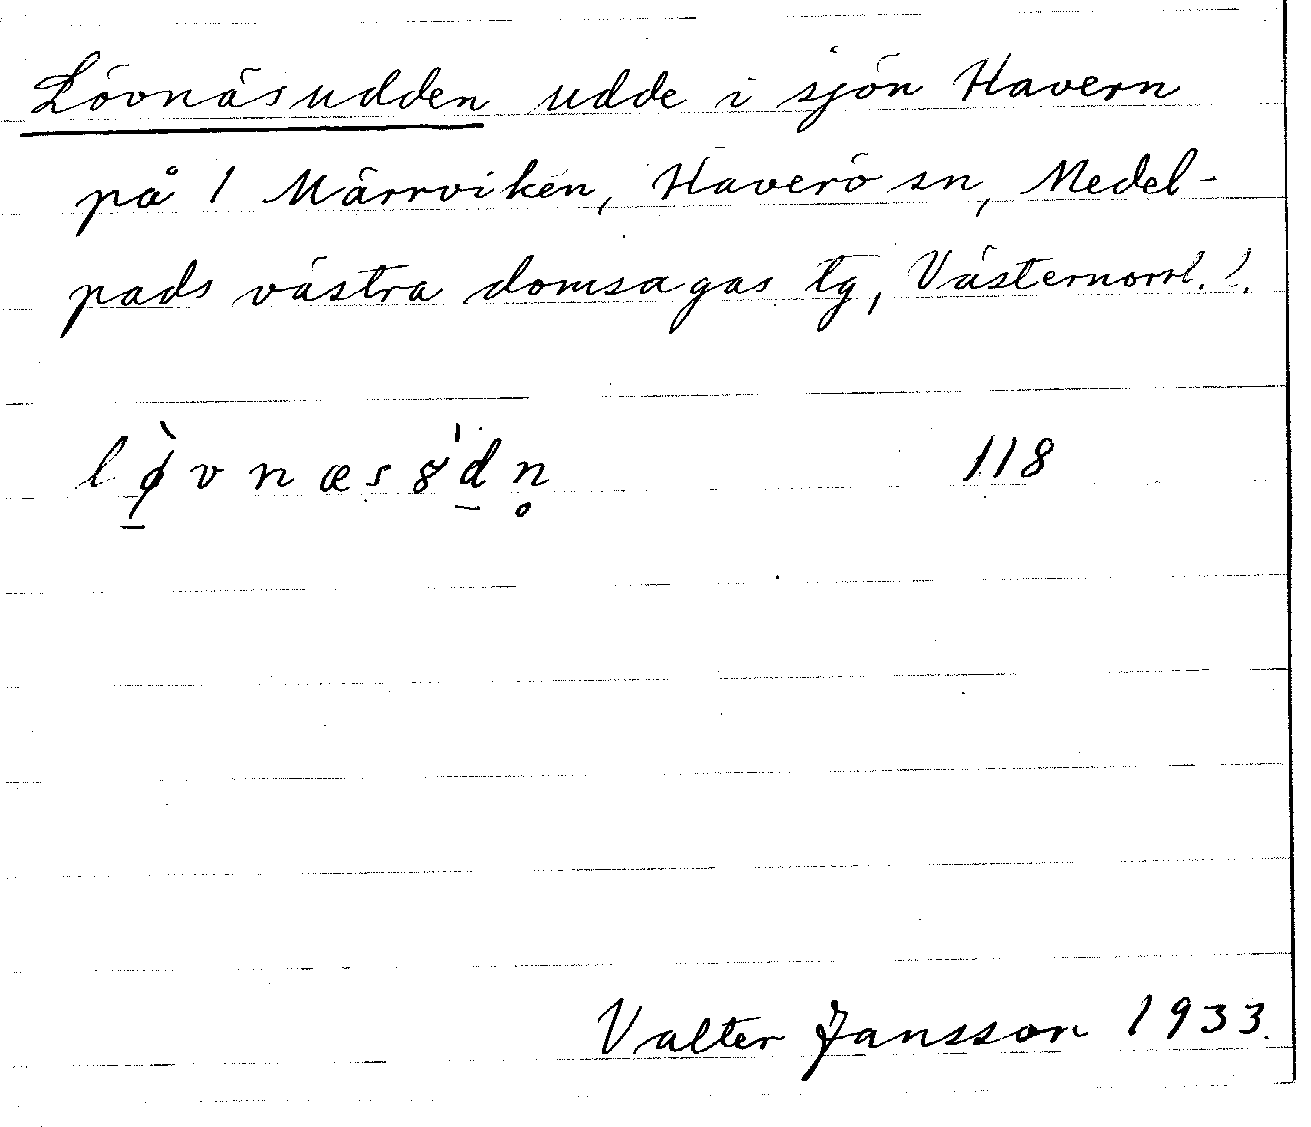 Lövnäsudden udde i sjön Havern
på 1 Märrviken, Haverö sn, Medel-
pads västra domsagas tg, Västernorrl. l.
lø̀vnæs8'dn̥ 118
Valter Jansson 1933.